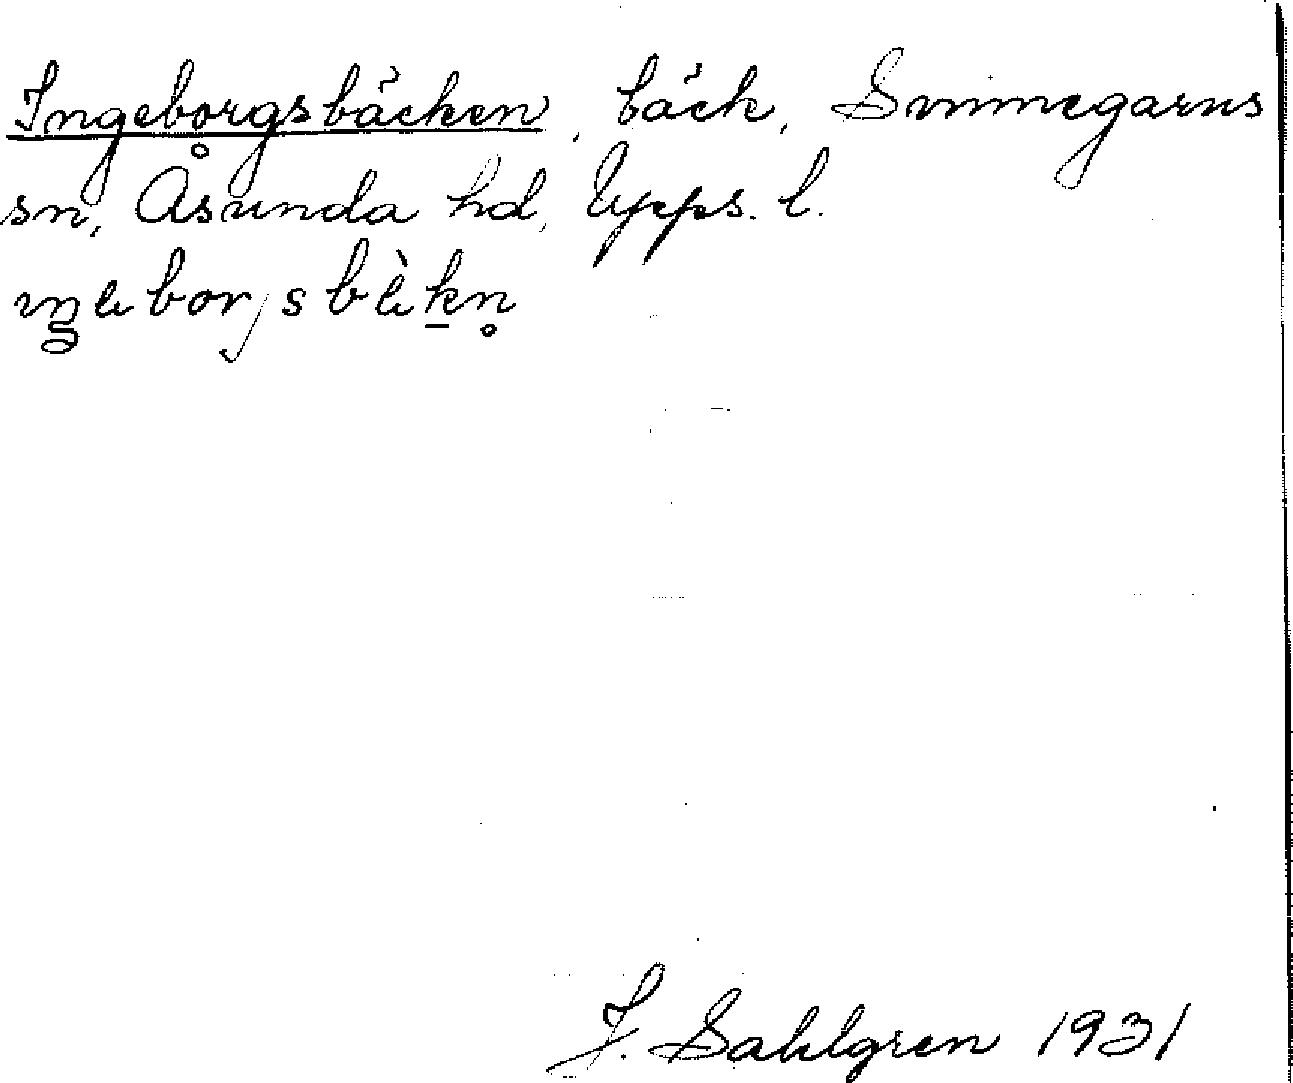 Ingeborgsbäcken, bäck, Svinnegarns
sn, Åsunda hd, Upps. l.
ıŋebor̨sbèḵn̥
J. Sahlgren 1931